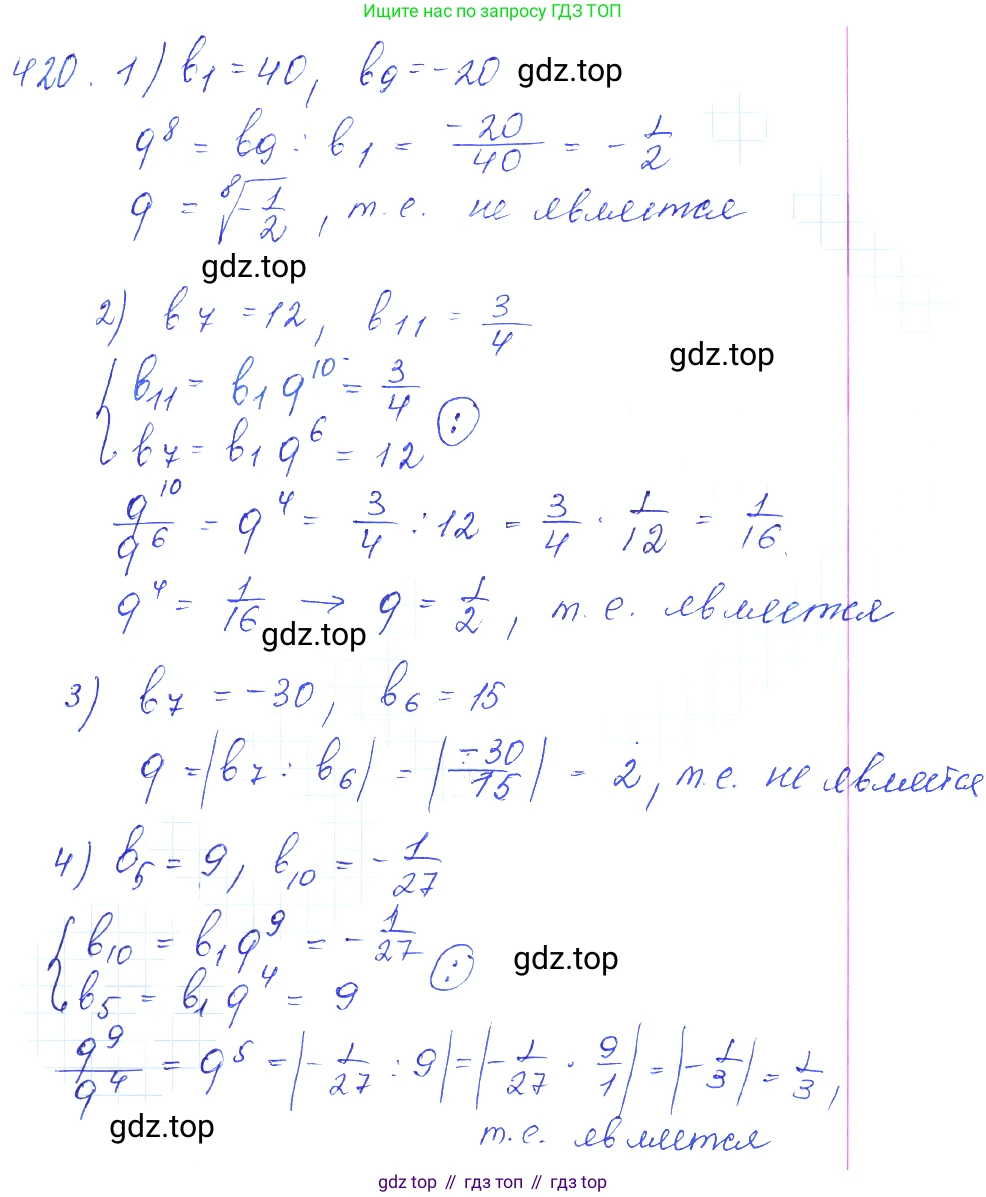 Ищите нас по запросу ГДЗ ТОП
420. 1) b₁ = 40, b₉ = -20 gdz.top
q⁸ = b₉ : b₁ = -20/40 = - 1/2
q = ⁸√(-1/2), т.е. не является
gdz.top
2) b₇ = 12, b₁₁ = 3/4
gdz.top
{ b₁₁ = b₁ q¹⁰ = 3/4
b₇ = b₁ q⁶ = 12 (:)
q¹⁰/q⁶ = q⁴ = 3/4 : 12 = 3/4 · 1/12 = 1/16.
q⁴ = 1/16 → q = 1/2, т.е. является
gdz.top
3) b₇ = -30, b₆ = 15
q = |b₇ : b₆| = |-30/15| = 2, т.е. не является
4) b₅ = 9, b₁₀ = - 1/27
{ b₁₀ = b₁ q⁹ = - 1/27
gdz.top
b₅ = b₁ q⁴ = 9 (:)
q⁹/q⁴ = q⁵ = |- 1/27 : 9| = |- 1/27 · 9/1| = |- 1/3| = 1/3,
gdz.top
т.е. является
gdz top // гдз топ // gdz top